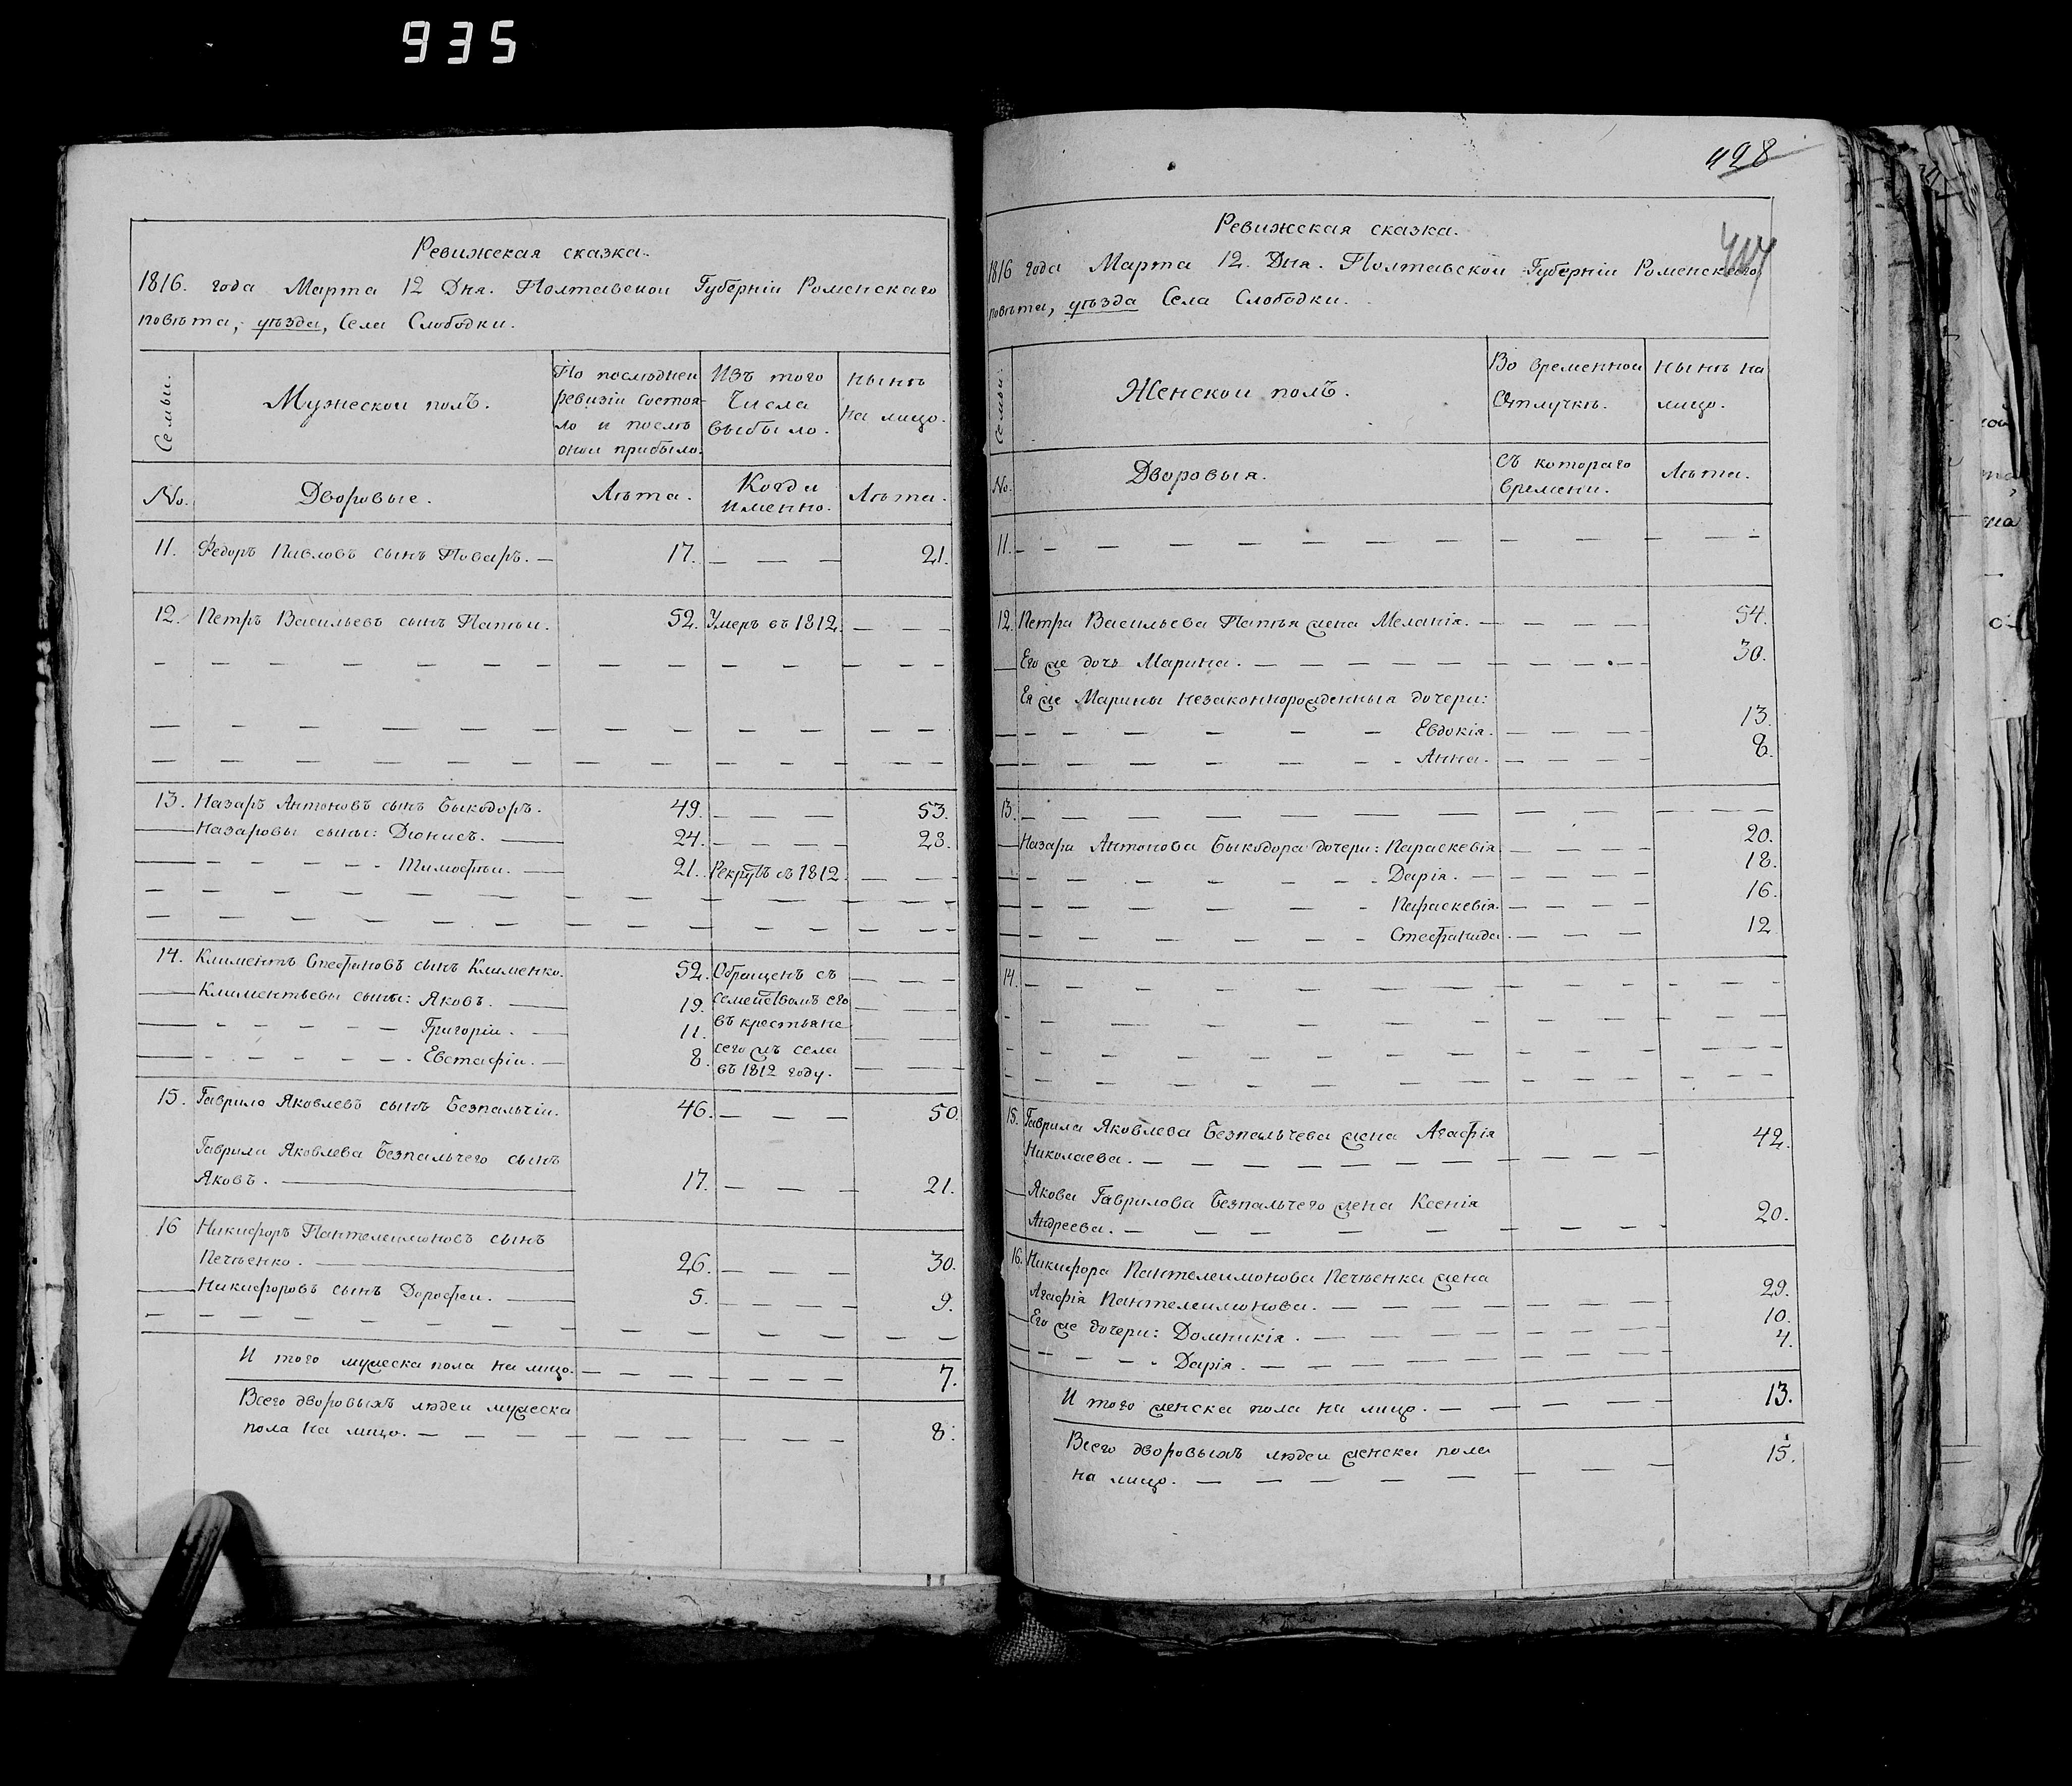 935
Ревижская сказка.
1816. года Марта 12 Дня. Полтавской Губерніи Роменскаго
повѣта, уѣзда, Села Слободки.
Семьи.
Мужескои полъ.
По послѣднеи ревизіи состояло и послѣ онои прибыло.
Изъ того Числа выбыло.
нынѣ на лицо.
No.
Дворовые.
Лѣта.
Когда именно.
Лѣта.
11. Федоръ Павловъ сынъ Поваръ. — 17. — — — 21.
12. Петръ Васильевъ сынъ Патѣи. 52. Умеръ въ 1812. — — —
13. Назаръ Антоновъ сынъ Быкодоръ. 49. — — — 53.
Назаровы сыны: Діонисъ. — 24. — — — — 28.
Тимофѣи. — 21. Рекрутъ въ 1812. — — —
14. Климентъ Стефановъ сынъ Клименко. 52. Обращенъ съ — — —
Климентьевы сыны: Яковъ. — 19. семействомъ его — — —
Григоріи. — 11. въ крестьяне — — —
Евстафіи. — 8. сего жъ села
въ 1812 году. — — —
15. Гаврило Яковлевъ сынъ Безпальчіи. 46. — — — 50.
Гаврила Яковлева Безпальчего сынъ
Яковъ. — 17. — — — 21.
16 Никифоръ Пантелеимоновъ сынъ
Печѣенко. — 26. — — — 30.
Никифоровъ сынъ Дорофеи. — 5. — — — — 9.
И того мужеска пола на лицо. — — — — 7.
Всего дворовыхъ людеи мужеска
пола на лицо. — — — — 8.
428
Ревижская сказка.
1816 года Марта 12. Дня. Полтавской Губерніи Роменскаго
повѣта, уѣзда Села Слободки.
Семьи.
Женскои полъ.
Во временнои Отлучкѣ.
нынѣ на лицо.
No.
Дворовыя.
Съ котораго времени.
Лѣта.
11. — — — — — — — —
12. Петра Васильева Патѣя жена Меланія. — — — — 54.
Его же дочь Марина. — — — — 30.
Ея же Марины незаконнорожденныя дочери:
Евдокія. — — — — 13.
Анна. — — — — 8.
13. — — — — — — — —
Назара Антонова Быкодора дочери: Параскевія. — — — — 20.
Дарія. — — — — 18.
Параскевія. — — — — 16.
Стефанида. — — — — 12
14. — — — — — — — —
15. Гаврила Яковлева Безпальчева жена Агафія
Николаева. — — — — 42.
Якова Гаврилова Безпальчего жена Ксенія
Андреева. — — — — 20.
16. Никифора Пантелеимонова Печѣенка жена
Агафія Пантелеимонова. — — — — 29.
Его же дочери: Домникія. — — — — 10.
Дарія. — — — — 4.
И того женска пола на лицо. — — — — 13.
Всего дворовыхъ людеи женска пола
на лицо. — — — — 15.